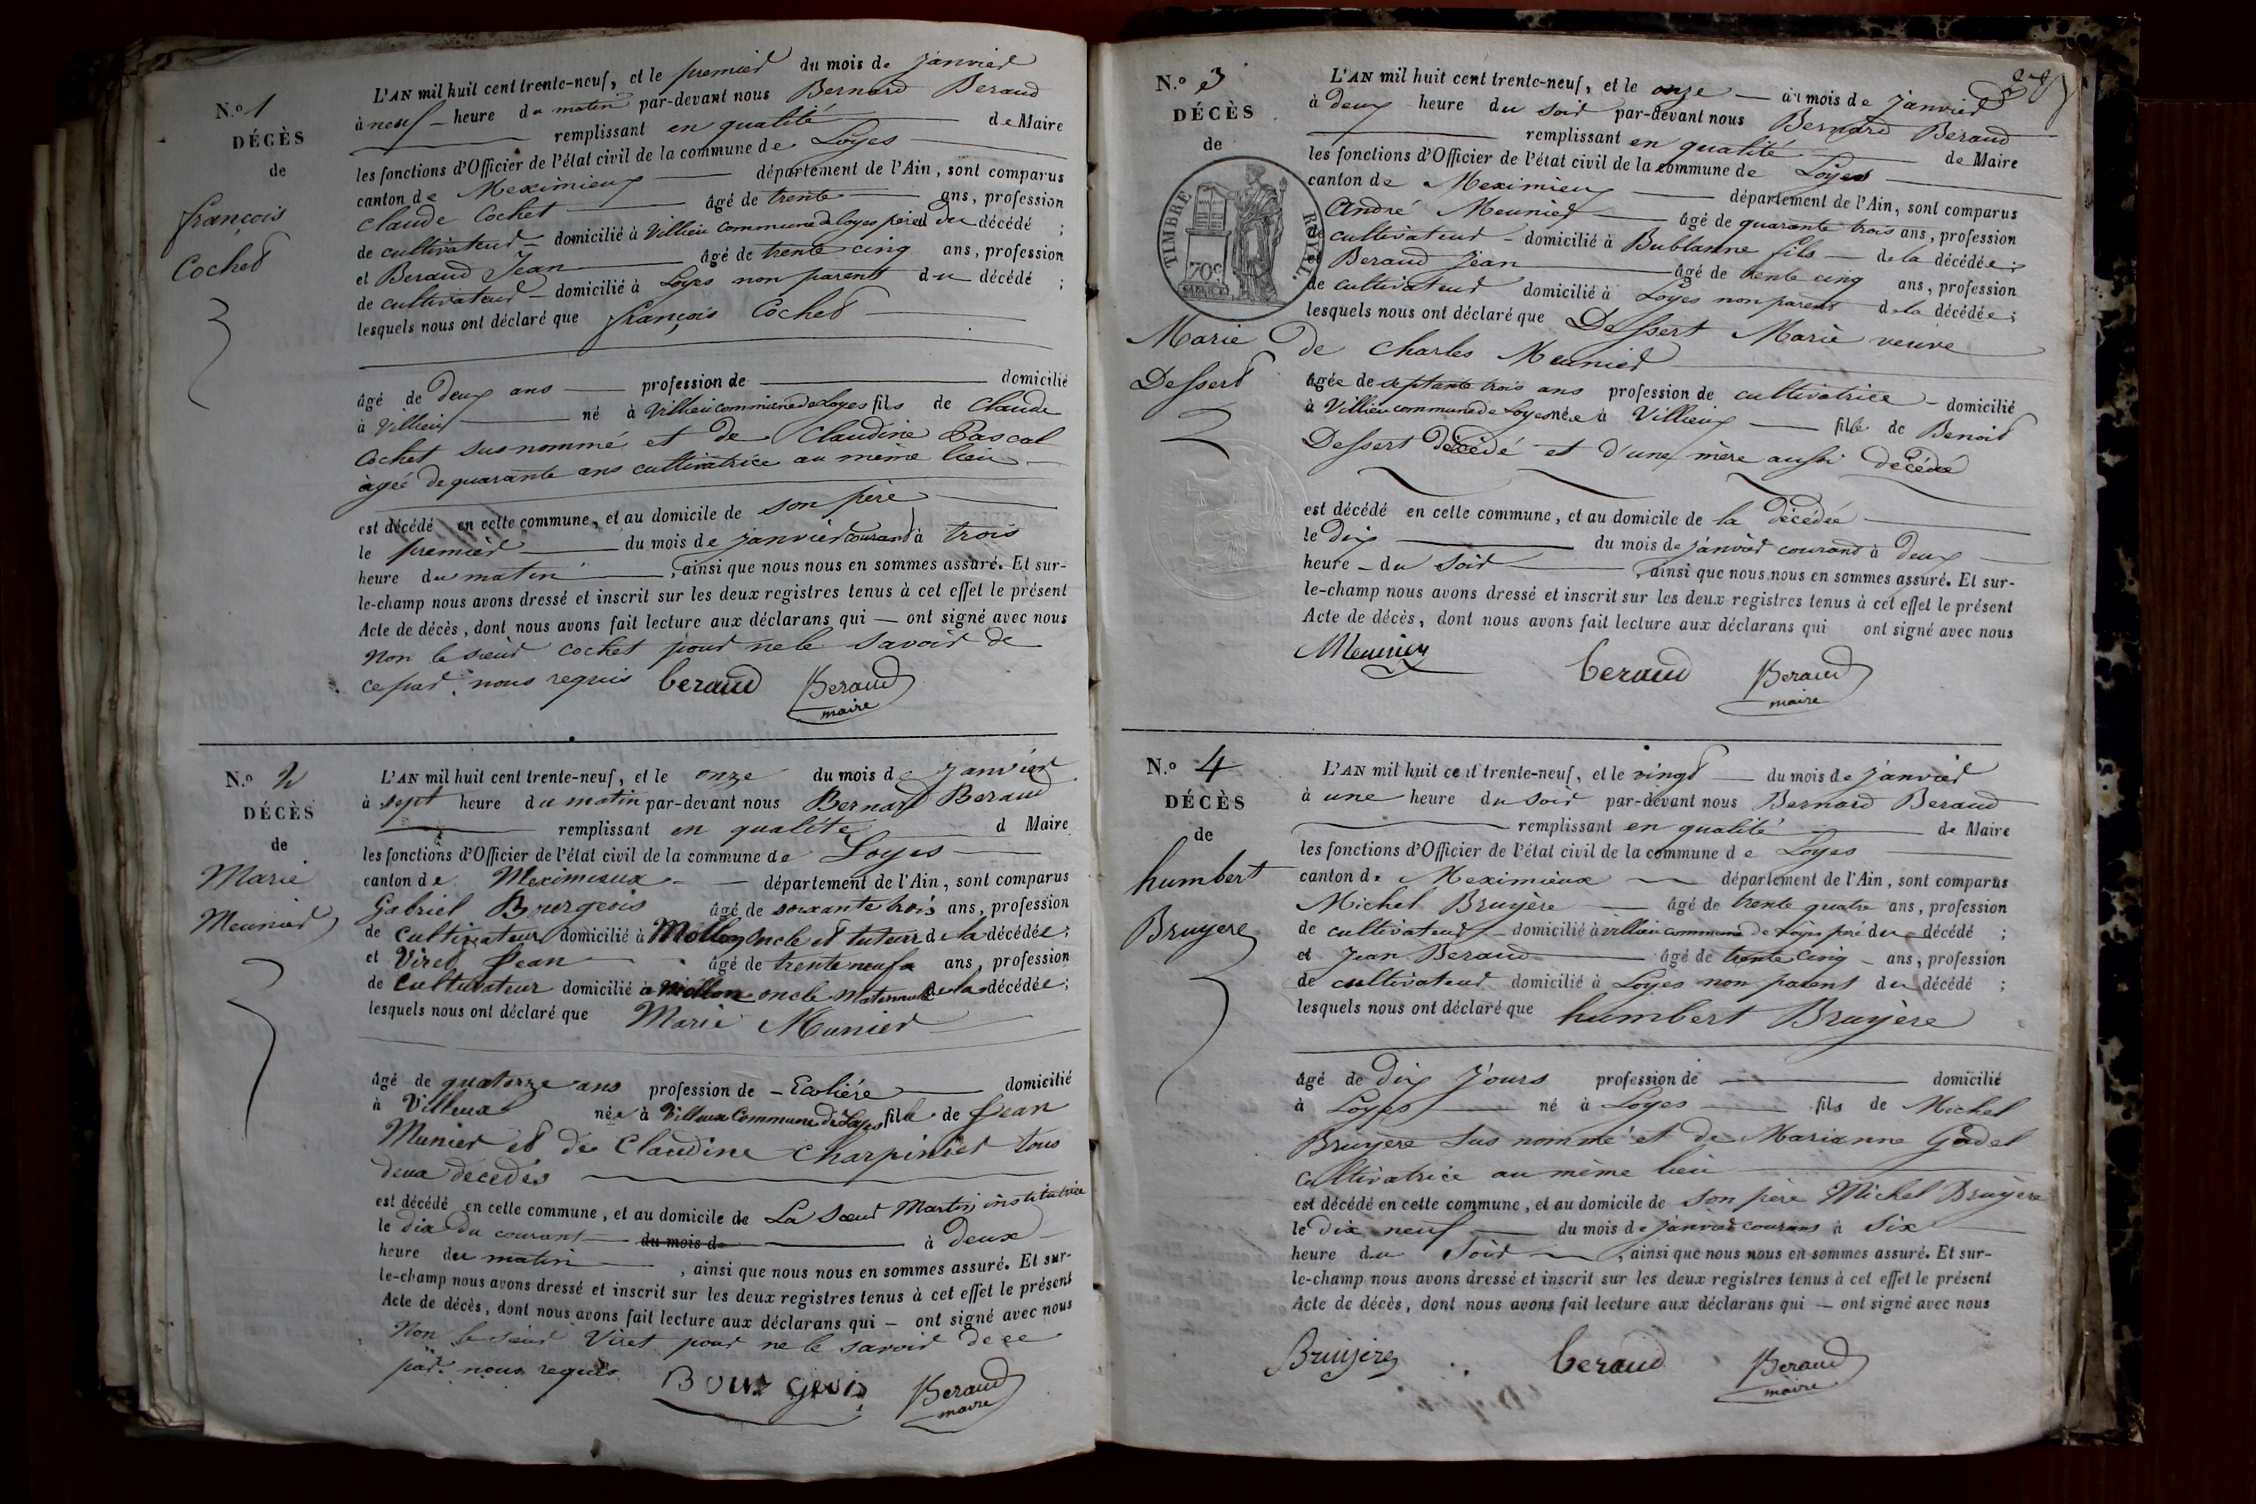 N.º 1
DÉCÈS
de
françois
Cochet
L'AN mil huit cent trente-neuf, et le premier du mois de janvier
à neuf heure du matin par-devant nous Bernard Beraud
remplissant en qualité de Maire
les fonctions d'Officier de l'état civil de la commune de Loyes
canton de Meximieux département de l'Ain, sont comparus
Claude Cochet âgé de trente ans, profession
de cultivateur domicilié à Villieu commune de Loyes pere du décédé ;
et Beraud Jean âgé de trente cinq ans, profession
de cultivateur domicilié à Loyes non parent du décédé ;
lesquels nous ont déclaré que françois Cochet
âgé de deux ans profession de domicilié
à Villieux né à Villieu commune de Loyes fils de Claude
Cochet susnommé et de Claudine Pascal
agée de quarante ans cultivatrice au même lieu
est décédé en cette commune, et au domicile de son père
le premier du mois de janvier courant à trois
heure du matin, ainsi que nous nous en sommes assuré. Et sur-
le-champ nous avons dressé et inscrit sur les deux registres tenus à cet effet le présent
Acte de décès, dont nous avons fait lecture aux déclarans qui — ont signé avec nous
Non le sieur Cochet pour ne le savoir de
ce par nous requis beraud Beraud
maire
N.º 2
DÉCÈS
de
Marie
Meunier
L'AN mil huit cent trente-neuf, et le onze du mois de janvier
à sept heure du matin par-devant nous Bernard Beraud
remplissant en qualité d Maire
les fonctions d'Officier de l'état civil de la commune de Loyes
canton de Meximieux département de l'Ain, sont comparus
Gabriel Bourgeois âgé de soixante trois ans, profession
de Cultivateur domicilié à Mollon oncle et tuteur de la décédée ;
et Viret Jean âgé de trente neuf ans, profession
de Cultivateur domicilié à Mollon oncle maternel de la décédée ;
lesquels nous ont déclaré que Marie Munier
âgé de quatorze ans profession de Ecolière domicilié
à Villieux née à Villieux Commune de Loyes fille de Jean
Munier et de Claudine Charpinier tous
deux décédés
est décédé en cette commune, et au domicile de La Sœur Martin institutrice
le dix du courant du mois de à deux
heure du matin, ainsi que nous nous en sommes assuré. Et sur-
le-champ nous avons dressé et inscrit sur les deux registres tenus à cet effet le présent
Acte de décès, dont nous avons fait lecture aux déclarans qui — ont signé avec nous
Non le sieur Viret pour ne le savoir de ce
par nous requis Bourgeois Beraud
maire
N.º 3
DÉCÈS
de
TIMBRE ROYAL
70c
Marie
Dessert
L'AN mil huit cent trente-neuf, et le onze du mois de janvier
à deux heure du soir par-devant nous Bernard Beraud
remplissant en qualité de Maire
les fonctions d'Officier de l'état civil de la commune de Loyes
canton de Meximieux département de l'Ain, sont comparus
André Meunier âgé de quarante trois ans, profession
cultivateur domicilié à Bublanne fils de la décédée ;
Beraud Jean âgé de trente cinq ans, profession
de cultivateur domicilié à Loyes non parent de la décédée ;
lesquels nous ont déclaré que Dessert Marie veuve
de Charles Meunier
âgée de septante trois ans profession de cultivatrice domicilié
à Villieu commune de Loyes née à Villieux fille de Benoit
Dessert décédé et d'une mère aussi décédée
est décédé en cette commune, et au domicile de la décédée
le dix du mois de janvier courant à deux
heure du soir, ainsi que nous nous en sommes assuré. Et sur-
le-champ nous avons dressé et inscrit sur les deux registres tenus à cet effet le présent
Acte de décès, dont nous avons fait lecture aux déclarans qui ont signé avec nous
Meunier beraud Beraud
maire
N.º 4
DÉCÈS
de
humbert
Bruyere
L'AN mil huit cent trente-neuf, et le vingt du mois de janvier
à une heure du soir par-devant nous Bernard Beraud
remplissant en qualité de Maire
les fonctions d'Officier de l'état civil de la commune de Loyes
canton de Meximieux département de l'Ain, sont comparus
Michel Bruyère âgé de trente quatre ans, profession
de cultivateur domicilié à villieu commune de Loyes pere du décédé ;
et Jean Beraud âgé de trente cinq ans, profession
de cultivateur domicilié à Loyes non parent du décédé ;
lesquels nous ont déclaré que humbert Bruyère
âgé de dix jours profession de domicilié
à Loyes né à Loyes fils de Michel
Bruyere sus nommé et de Marianne Godel
cultivatrice au même lieu
est décédé en cette commune, et au domicile de son père Michel Bruyere
le dix neuf du mois de janvier courant à six
heure du soir, ainsi que nous nous en sommes assuré. Et sur-
le-champ nous avons dressé et inscrit sur les deux registres tenus à cet effet le présent
Acte de décès, dont nous avons fait lecture aux déclarans qui — ont signé avec nous
Bruijere beraud Beraud
maire